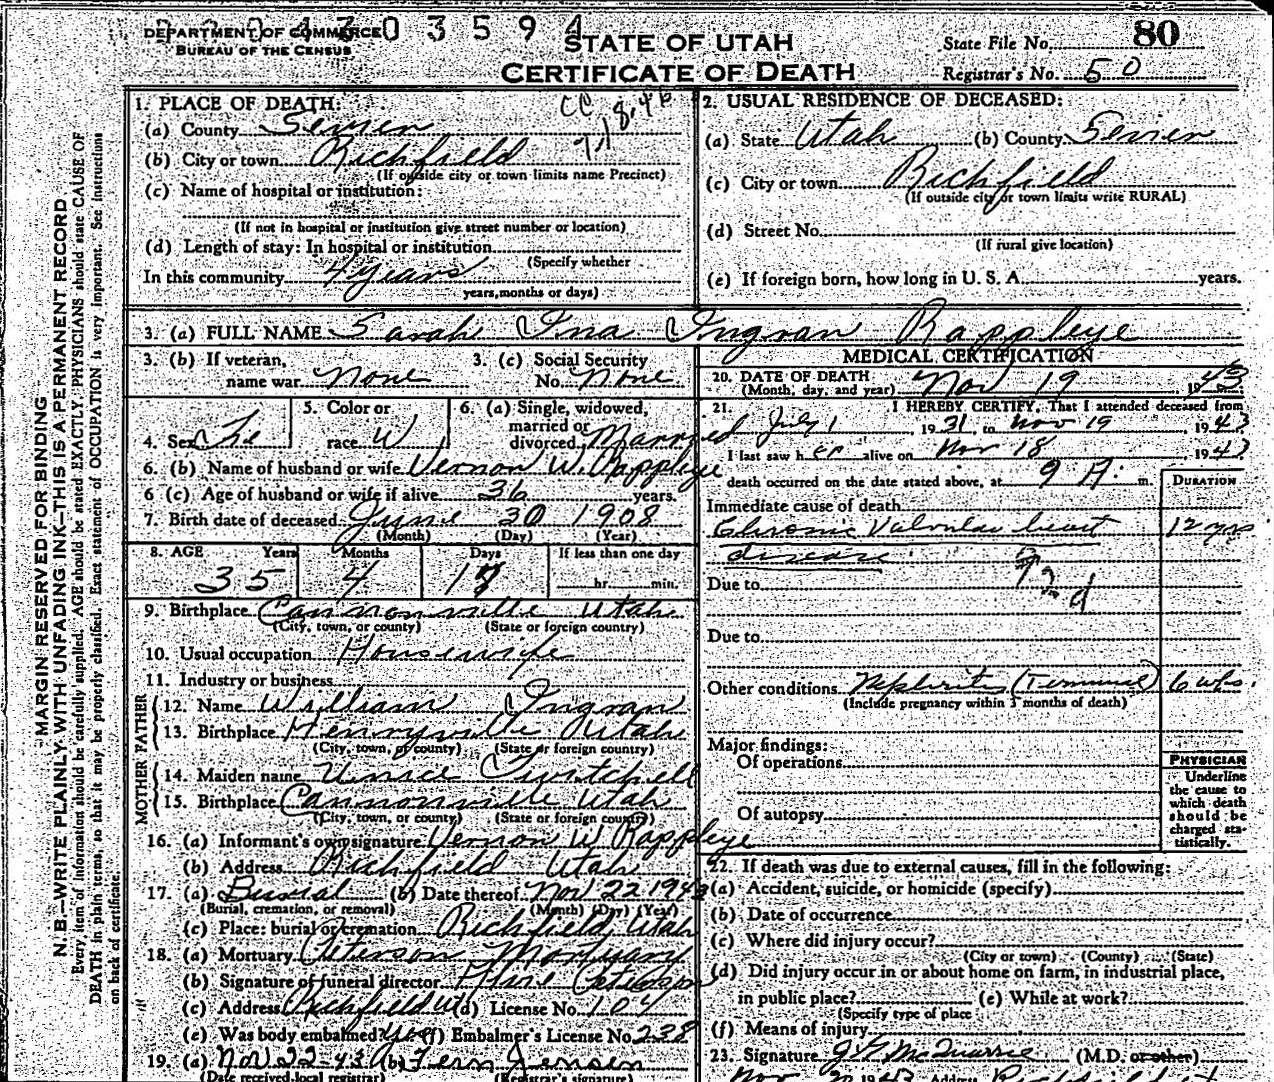 DEPARTMENT OF COMMERCE
BUREAU OF THE CENSUS
0 3 5 9 4
STATE OF UTAH
CERTIFICATE OF DEATH
State File No. 80
Registrar's No. 50
MARGIN RESERVED FOR BINDING
N. B.—WRITE PLAINLY WITH UNFADING INK—THIS IS A PERMANENT RECORD
Every item of information should be carefully supplied. AGE should be stated EXACTLY. PHYSICIANS should state CAUSE OF
DEATH in plain terms, so that it may be properly classified. Exact statement of OCCUPATION is very important. See instructions
on back of certificate.
1. PLACE OF DEATH:
(a) County Sevier
(b) City or town Richfield
(If outside city or town limits name Precinct)
(c) Name of hospital or institution:
(If not in hospital or institution give street number or location)
(d) Length of stay: In hospital or institution
(Specify whether
In this community 4 years
years, months or days)
2. USUAL RESIDENCE OF DECEASED:
(a) State Utah (b) County Sevier
(c) City or town Richfield
(If outside city or town limits write RURAL)
(d) Street No.
(If rural give location)
(e) If foreign born, how long in U. S. A. years.
3. (a) FULL NAME Sarah Ina Ingram Rappleye
3. (b) If veteran, name war None
3. (c) Social Security No. None
4. Sex Fe
5. Color or race W
6. (a) Single, widowed, married or divorced Married
6. (b) Name of husband or wife Vernon W. Rappleye
6 (c) Age of husband or wife if alive 36 years.
7. Birth date of deceased June 30 1908
(Month) (Day) (Year)
8. AGE Years 35 Months 4 Days If less than one day
hr. min.
9. Birthplace Cannonville Utah
(City, town, or county) (State or foreign country)
10. Usual occupation Housewife
11. Industry or business
FATHER
12. Name William Ingram
13. Birthplace Henryville Utah
(City, town, or county) (State or foreign country)
MOTHER
14. Maiden name Twitchell
15. Birthplace Cannonville Utah
(City, town, or county) (State or foreign country)
16. (a) Informant's own signature Vernon W Rappleye
(b) Address Richfield Utah
17. (a) Burial (b) Date thereof Nov 22 1943
(Burial, cremation, or removal) (Month) (Day) (Year)
(c) Place: burial or cremation Richfield, Utah
18. (a) Mortuary Peterson Mortuary
(b) Signature of funeral director
(c) Address Richfield Ut (d) License No. 104
(e) Was body embalmed? yes (f) Embalmer's License No. 238
19. (a) Nov 22-43 (b) Fern Jensen
(Date received local registrar) (Registrar's signature)
MEDICAL CERTIFICATION
20. DATE OF DEATH
(Month, day, and year) Nov 19 1943
21. I HEREBY CERTIFY, That I attended deceased from
July 1, 1931, to Nov 19, 1943
I last saw her alive on Nov 18, 1943
death occurred on the date stated above, at 9 A. m.
DURATION
Immediate cause of death
Chronic Valvular heart 12 yrs
disease
Due to
Due to
Other conditions Nephritis (Terminal) 6 wks.
(Include pregnancy within 3 months of death)
Major findings:
Of operations
Of autopsy
PHYSICIAN
Underline
the cause to
which death
should be
charged sta-
tistically.
22. If death was due to external causes, fill in the following:
(a) Accident, suicide, or homicide (specify)
(b) Date of occurrence
(c) Where did injury occur?
(City or town) (County) (State)
(d) Did injury occur in or about home on farm, in industrial place,
in public place? (e) While at work?
(Specify type of place
(f) Means of injury
23. Signature McQuarrie (M.D. or other)